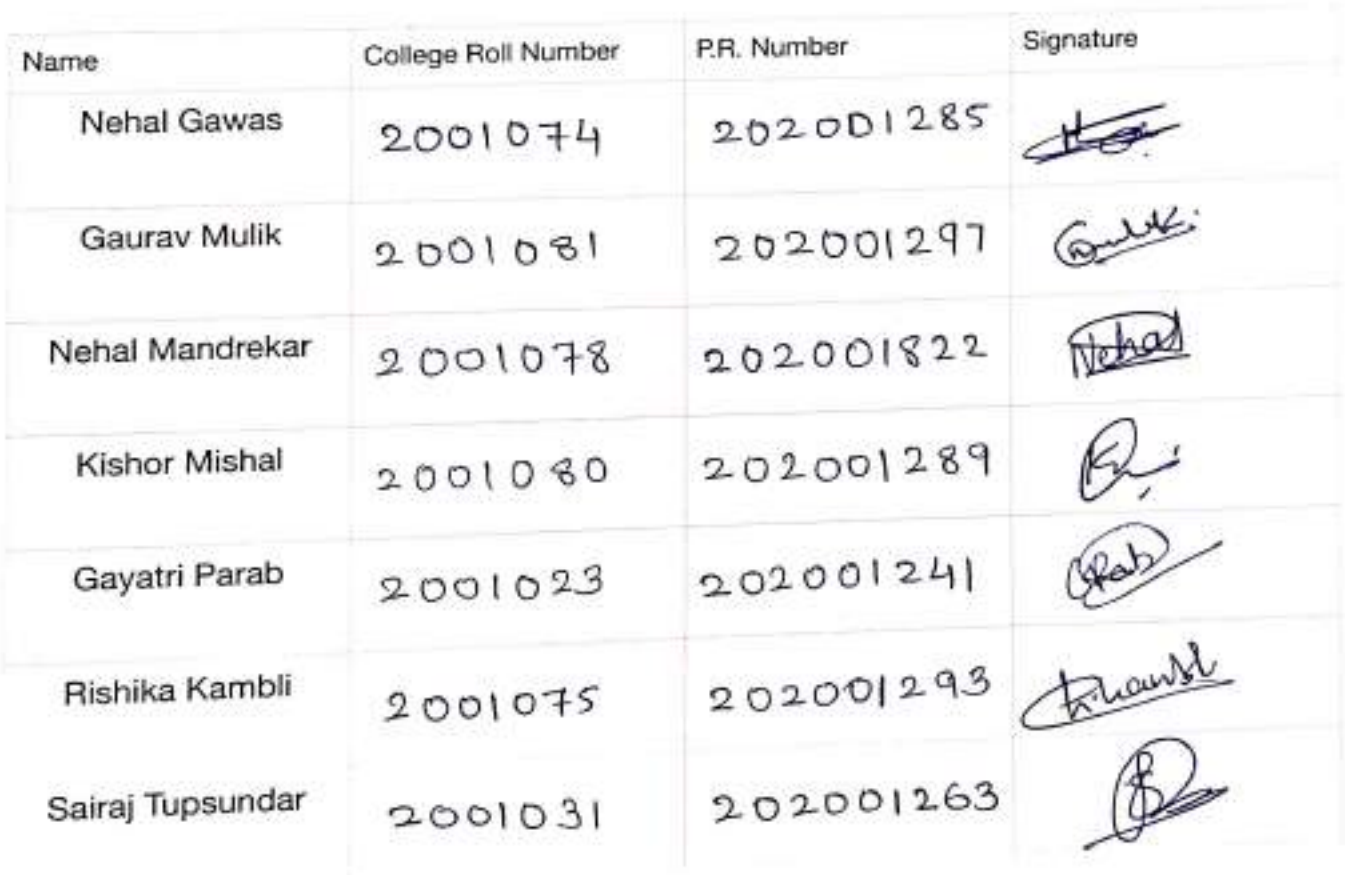 Name College Roll Number P.R. Number Signature
Nehal Gawas 2001074 202001285
Gaurav Mulik 2001081 202001297 Gmulik
Nehal Mandrekar 2001078 202001822 Nehal
Kishor Mishal 2001080 202001289
Gayatri Parab 2001023 202001241
Rishika Kambli 2001075 202001293
Sairaj Tupsundar 2001031 202001263